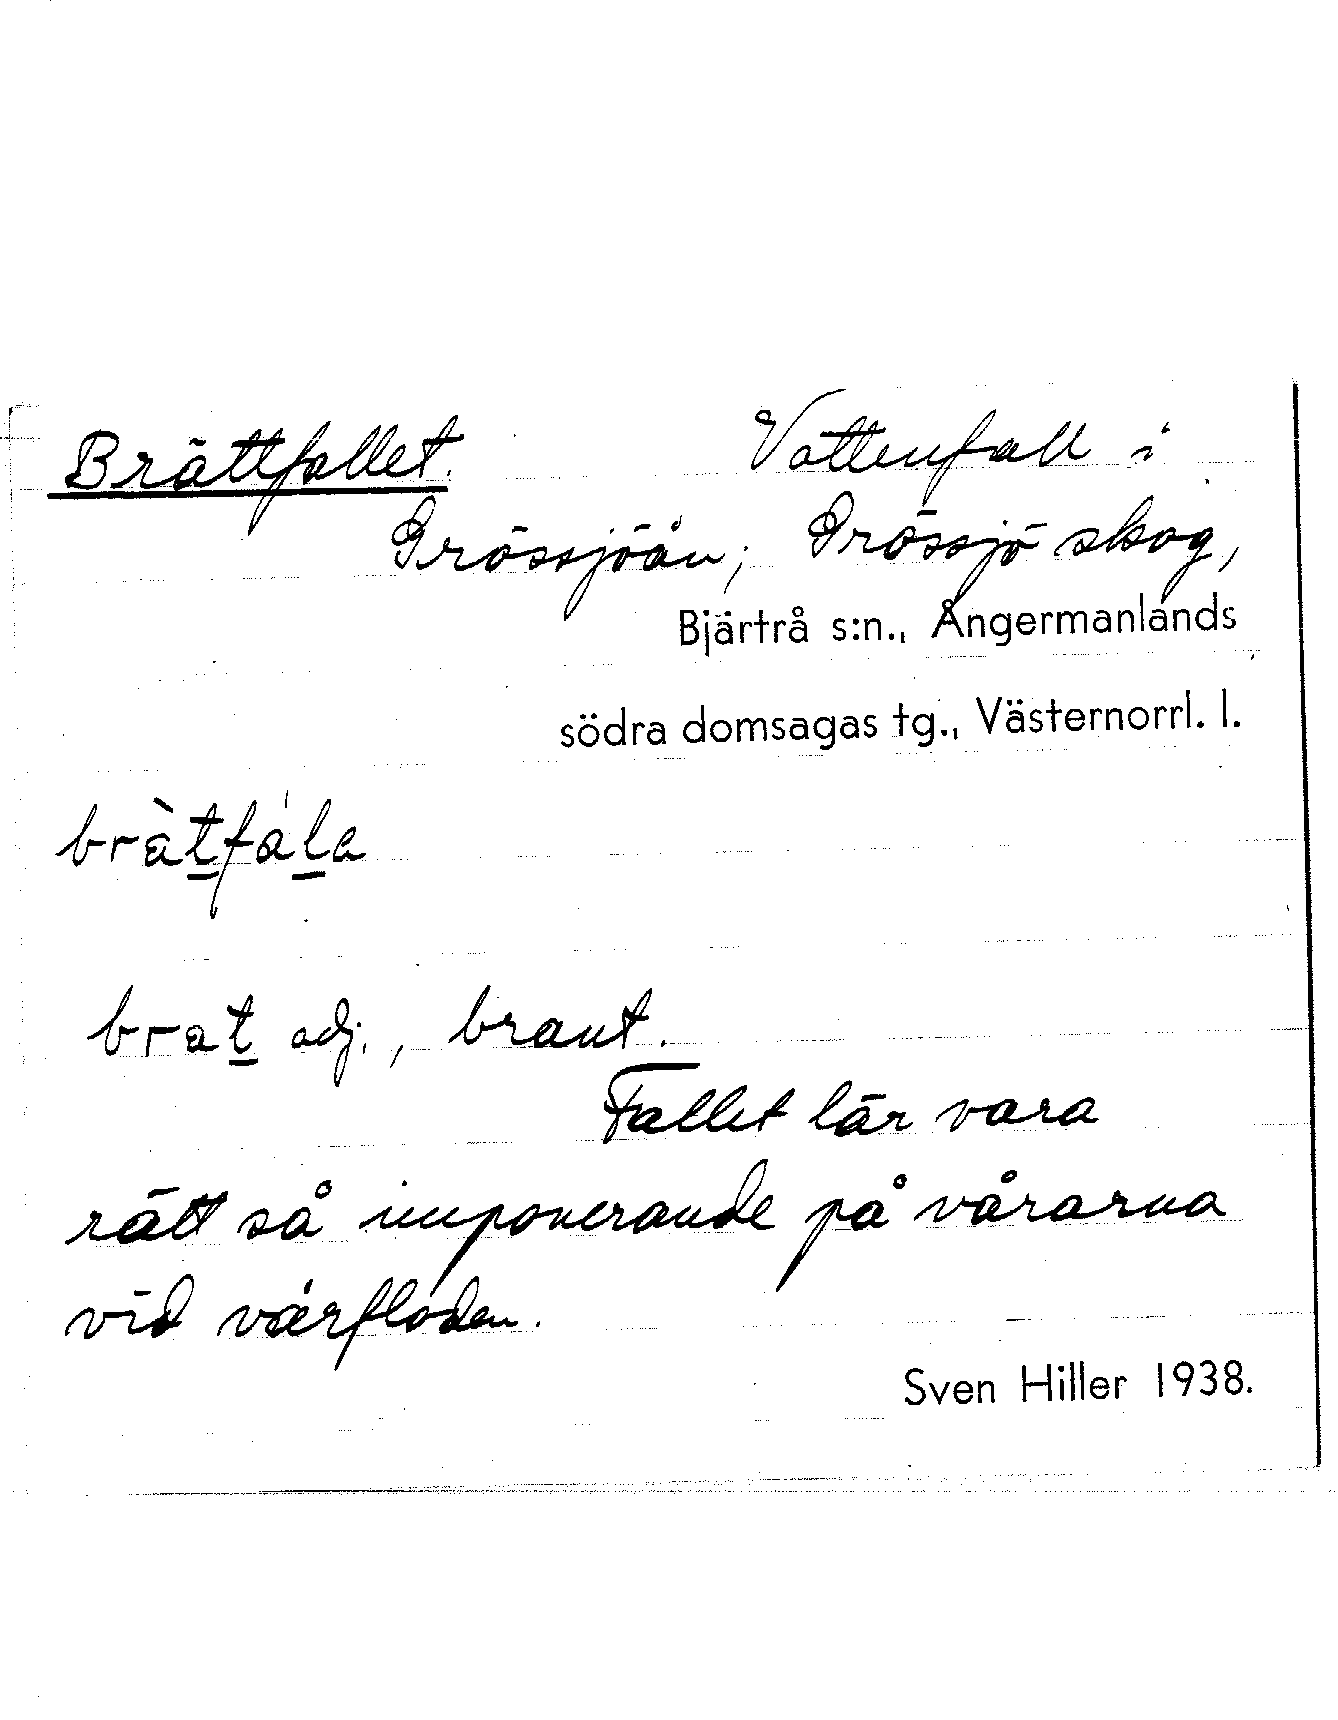 Brättfallet. Vattenfall i
Grössjöån, Grössjö skog,
Bjärtrå s:n., Ångermanlands
södra domsagas tg., Västernorrl. l.
brätfála
brat adj., brant.
Fallet lär vara
rätt så imponerande på vårarna
vid vårfloden.
Sven Hiller 1938.